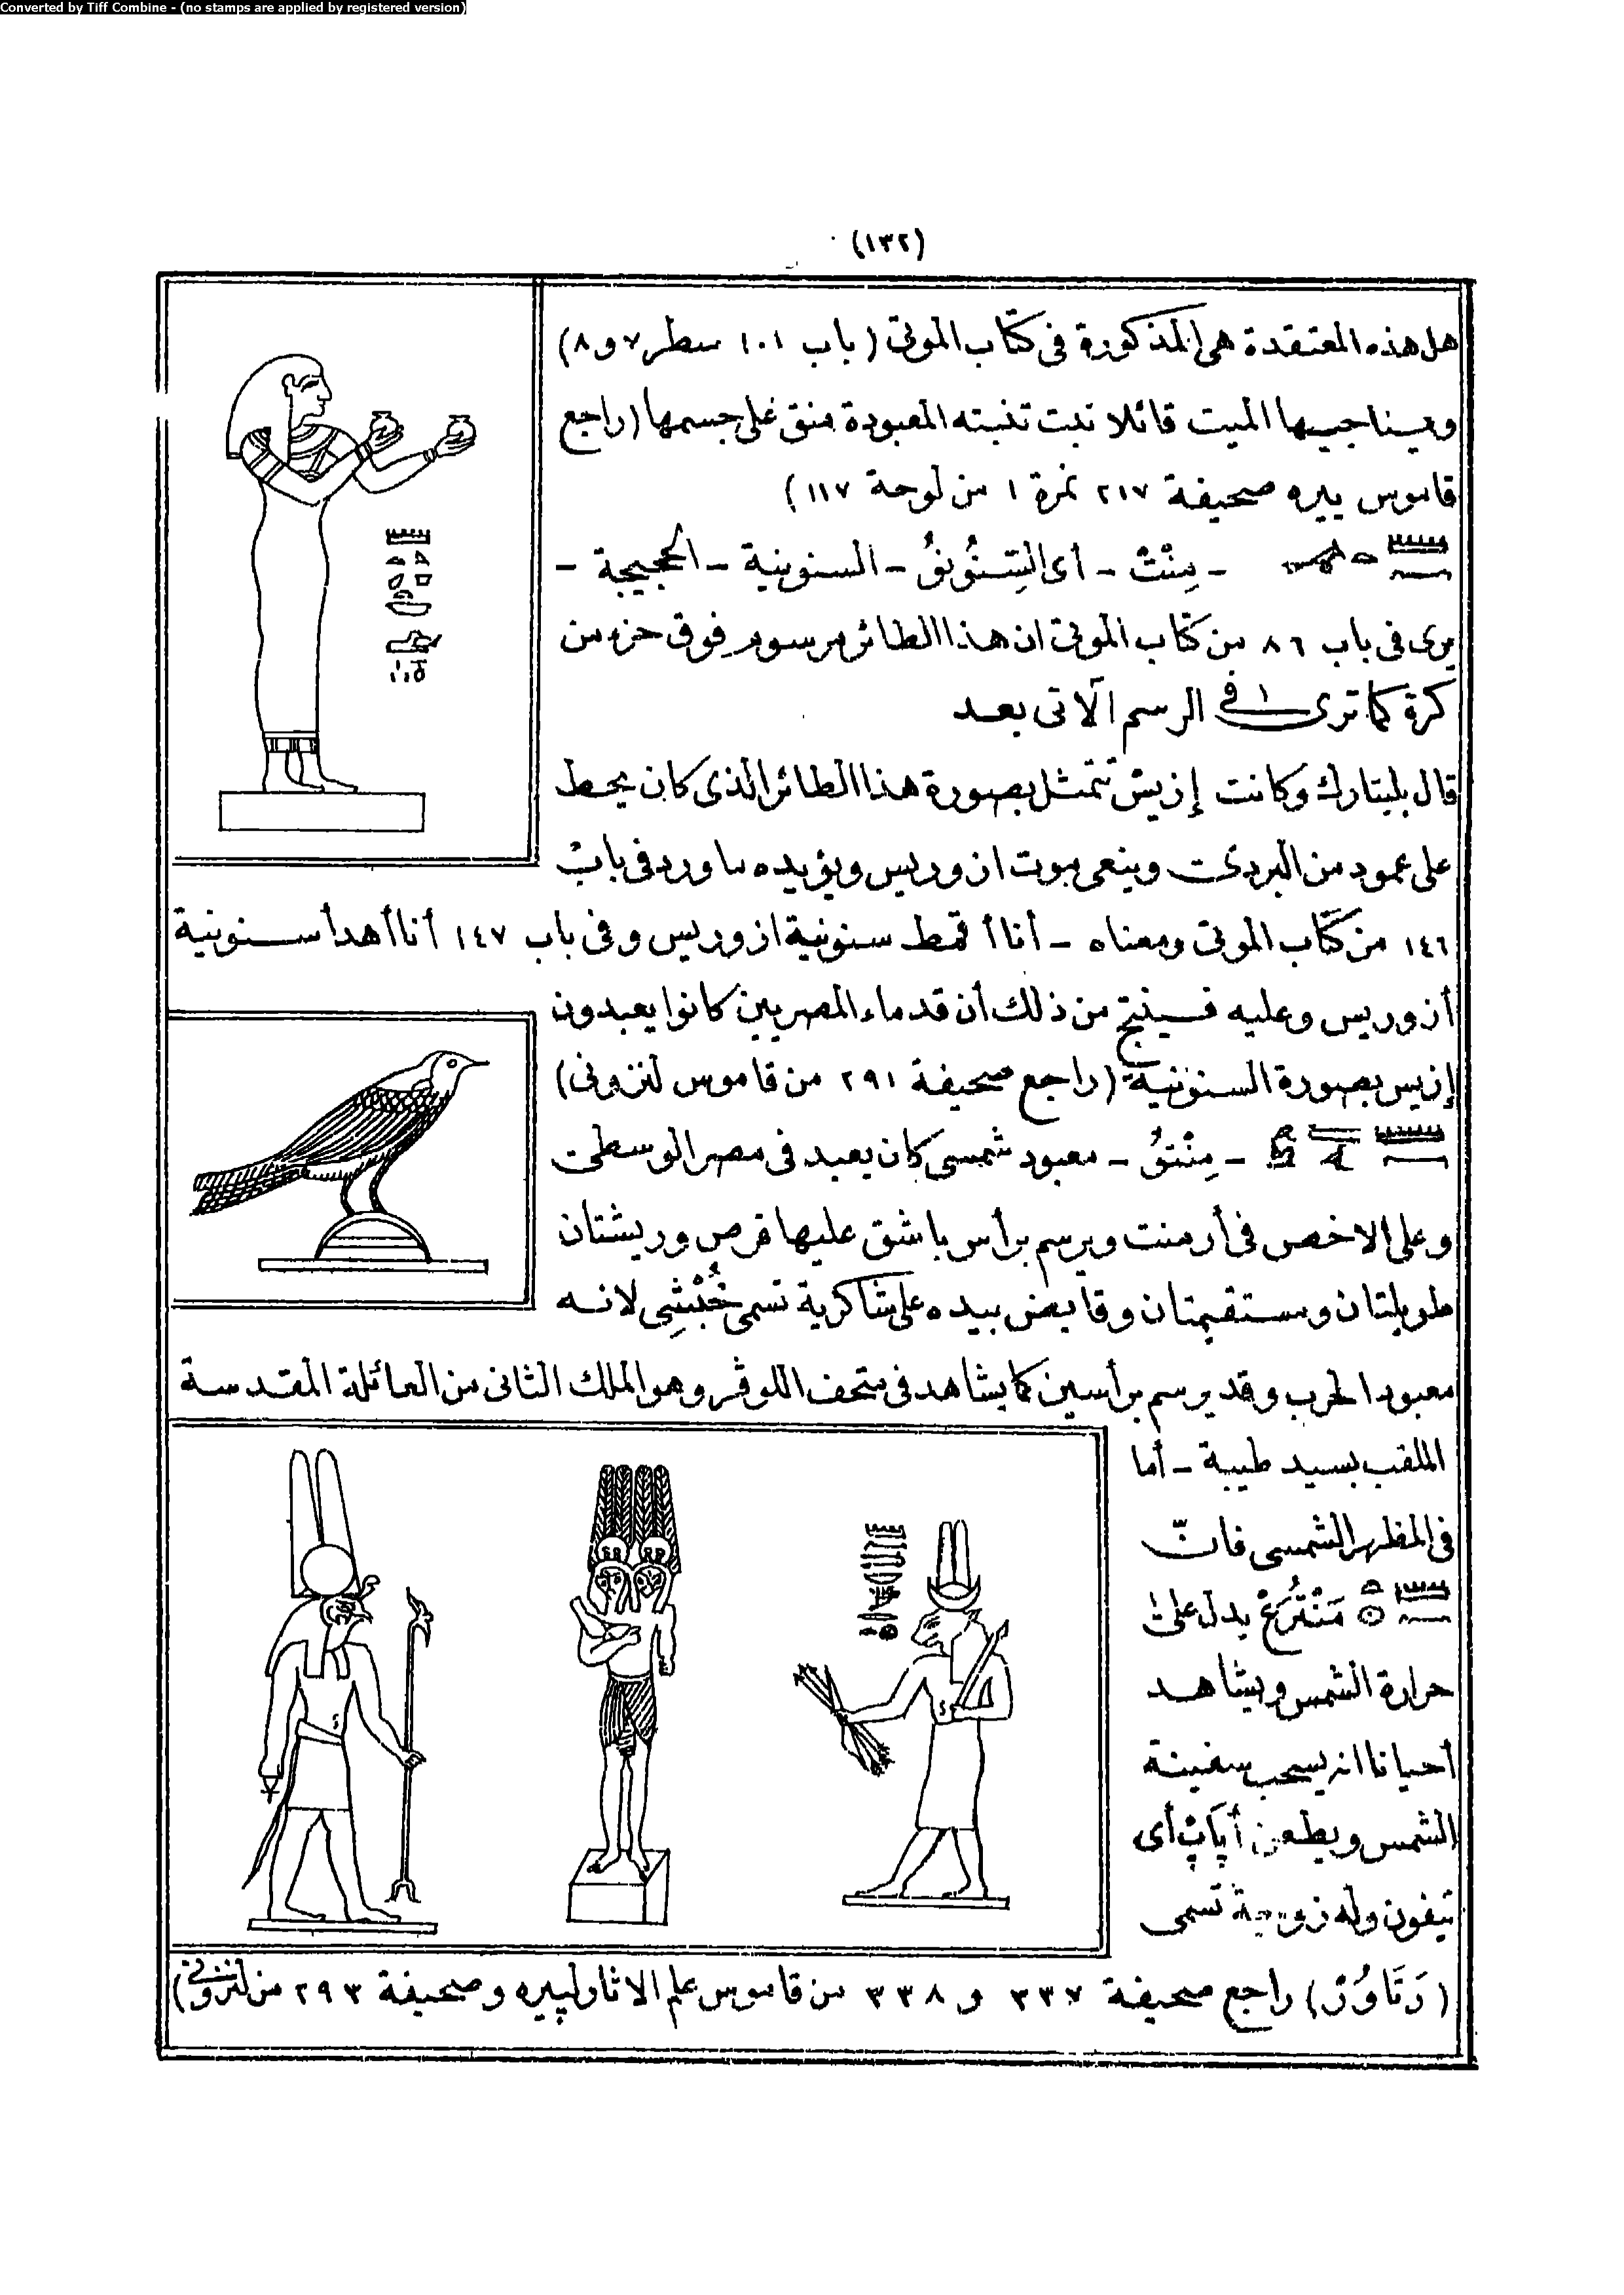 Converted by Tiff Combine - (no stamps are applied by registered version)
(١٣٢)
هل هذه المعتقدة هى المذكورة فى كتاب الموتى (باب ١٠١ سطر ٧ و ٨)
الميت قائلا المعبودة على جسمها (راجع
قاموس بيره صحيفة ٢١٧ نمرة ١ من لوحة ١١٧)
- مِنْتْ - أى السنونو - السنونية - -
يرى فى باب ٨٦ من كتاب الموتى ان هذا الطائر مرسوم فوق جزء من
كرة كما ترى فى الرسم الآتى بعد
قال بليتارك وكانت إزيس تتمثل بصورة هذا الطائر الذى كان يحط
على عمود من البردى وينعى موت ازوريس ويؤيده ما ورد فى باب
١٤٦ من كتاب الموتى ومعناه - أنا أقمط سنونية ازوريس وفى باب ١٤٧ أنا أهدأ سنونية
أزوريس وعليه فينتج من ذلك أن قدماء المصريين كانوا يعبدون
إزيس بصورة السنونية (راجع صحيفة ٢٩١ من قاموس لنزونى)
- مِنْتُو - معبود شمسى كان يعبد فى مصر الوسطى
وعلى الاخص فى أرمنت ويرسم برأس باشق عليها قرص وريشتان
طويلتان ومستقيمتان وقابض بيده على شاكرية تسمى خُبْشِى لانه
معبود الحرب وقد يرسم برأسين كما يشاهد فى متحف اللوڤر وهو الملك الثانى من العائلة المقدسة
الملقب بسيد طيبة - أما
فى المظهر الشمسى فانّ
مَنْتُرَعْ يدل على
حرارة الشمس ويشاهد
أحيانا انه يسحب سفينة
الشمس ويطعن أپاپ أى
تيفون وله زوجة تسمى
(رَتَاوُى) راجع صحيفة ٣٣٧ و ٣٣٨ من قاموس علم الاثار لبيره وصحيفة ٢٩٣ من لنزونى)